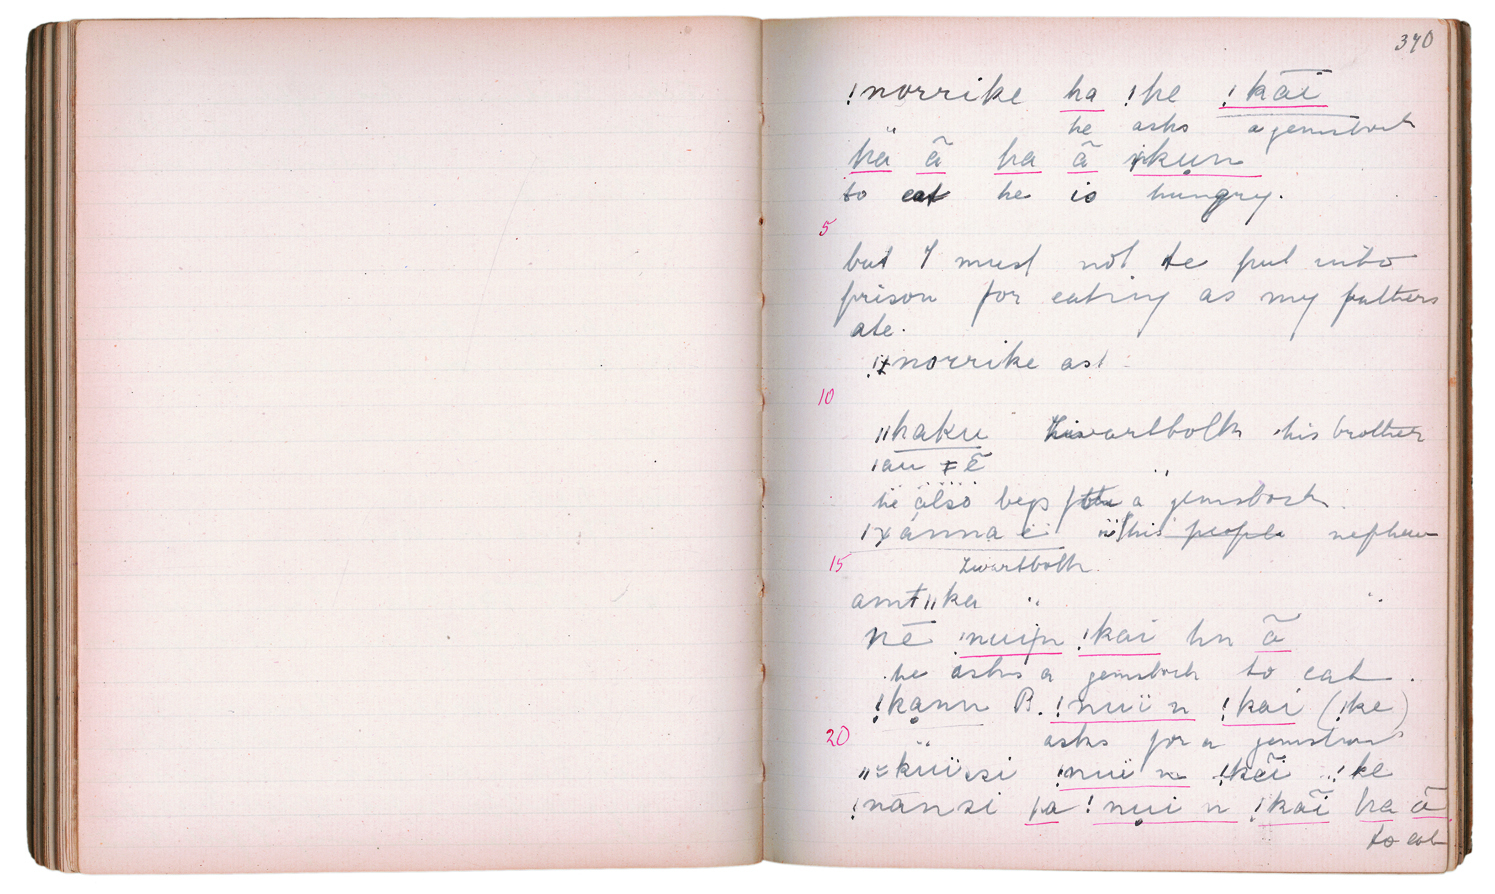 370
!norrike ha !he !kāī
he asks a gemsbock
hä ã ha ã !kun
to eat he is hungry.
5
but I must not be put into
prison for eating as my fathers
ate.
norrike as
10
ǁhaku Zwartbolk his brother
ǀau ǂ ẽ
he also begs a gemsbock
ǀxánna ĕ his people nephew
15
Zwartbolk.
amtǁka "
nē !nuin !kai hn ã
he asks a gemsbock to eat.
!kann B. !nuï n !kai (!ke)
asks for a gemsbock
20
küï si !nuï n !kãi !ke
!nansi ha !nui n !kãi ha ã
to eat